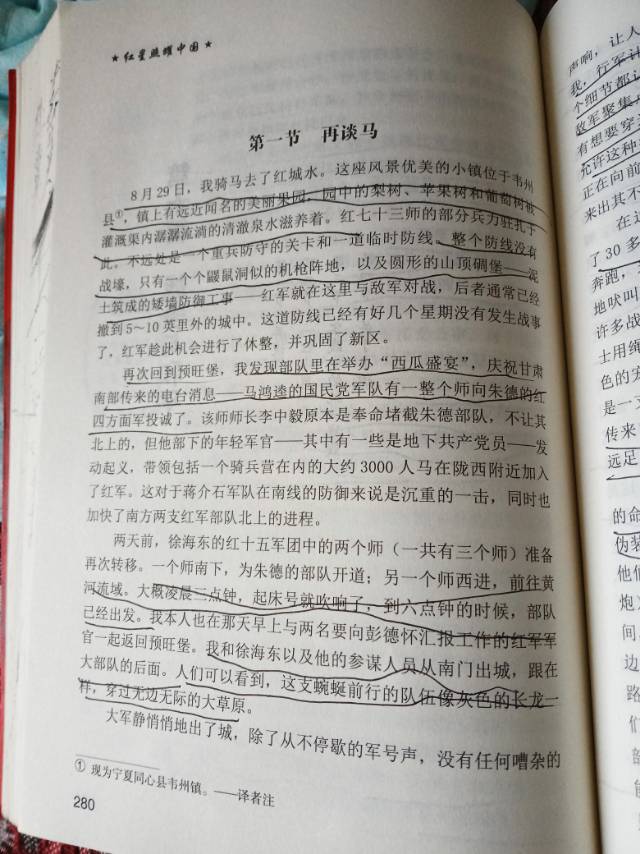 ★ 红星照耀中国 ★
第一节 再谈马
8月29日，我骑马去了红城水。这座风景优美的小镇位于韦州
县①，镇上有远近闻名的美丽果园，园中的梨树、苹果树和葡萄树被
灌溉渠内潺潺流淌的清澈泉水滋养着。红七十三师的部分兵力驻扎于
此。不远处是一个重兵防守的关卡和一道临时防线。整个防线没有
战壕，只有一个个鼹鼠洞似的机枪阵地，以及圆形的山顶碉堡——泥
土筑成的矮墙防御工事——红军就在这里与敌军对战，后者通常已经
撤到5~10英里外的城中。这道防线已经有好几个星期没有发生战事
了，红军趁此机会进行了休整，并巩固了新区。
再次回到预旺堡，我发现部队里在举办“西瓜盛宴”，庆祝甘肃
南部传来的电台消息——马鸿逵的国民党军队有一整个师向朱德的红
四方面军投诚了。该师师长李中毅原本是奉命堵截朱德部队，不让其
北上的，但他部下的年轻军官——其中有一些是地下共产党员——发
动起义，带领包括一个骑兵营在内的大约3000人马在陇西附近加入
了红军。这对于蒋介石军队在南线的防御来说是沉重的一击，同时也
加快了南方两支红军部队北上的进程。
两天前，徐海东的红十五军团中的两个师（一共有三个师）准备
再次转移。一个师南下，为朱德的部队开道；另一个师西进，前往黄
河流域。大概凌晨三点钟，起床号就吹响了，到六点钟的时候，部队
已经出发。我本人也在那天早上与两名要向彭德怀汇报工作的红军军
官一起返回预旺堡。我和徐海东以及他的参谋人员从南门出城，跟在
大部队的后面。人们可以看到，这支蜿蜒前行的队伍像灰色的长龙一
样，穿过无边无际的大草原。
大军静悄悄地出了城，除了从不停歇的军号声，没有任何嘈杂的
① 现为宁夏同心县韦州镇。——译者注
280
声响，让人
我，行军计
个细节都
敌军聚集
有想要穿
允许这种
正在向前
来出其不
在
了30多
奔跑，
地吹叫
许多战
士用绳
色的
是一
传来
远足
的命
伪装
他们
炮
间
边
路
们